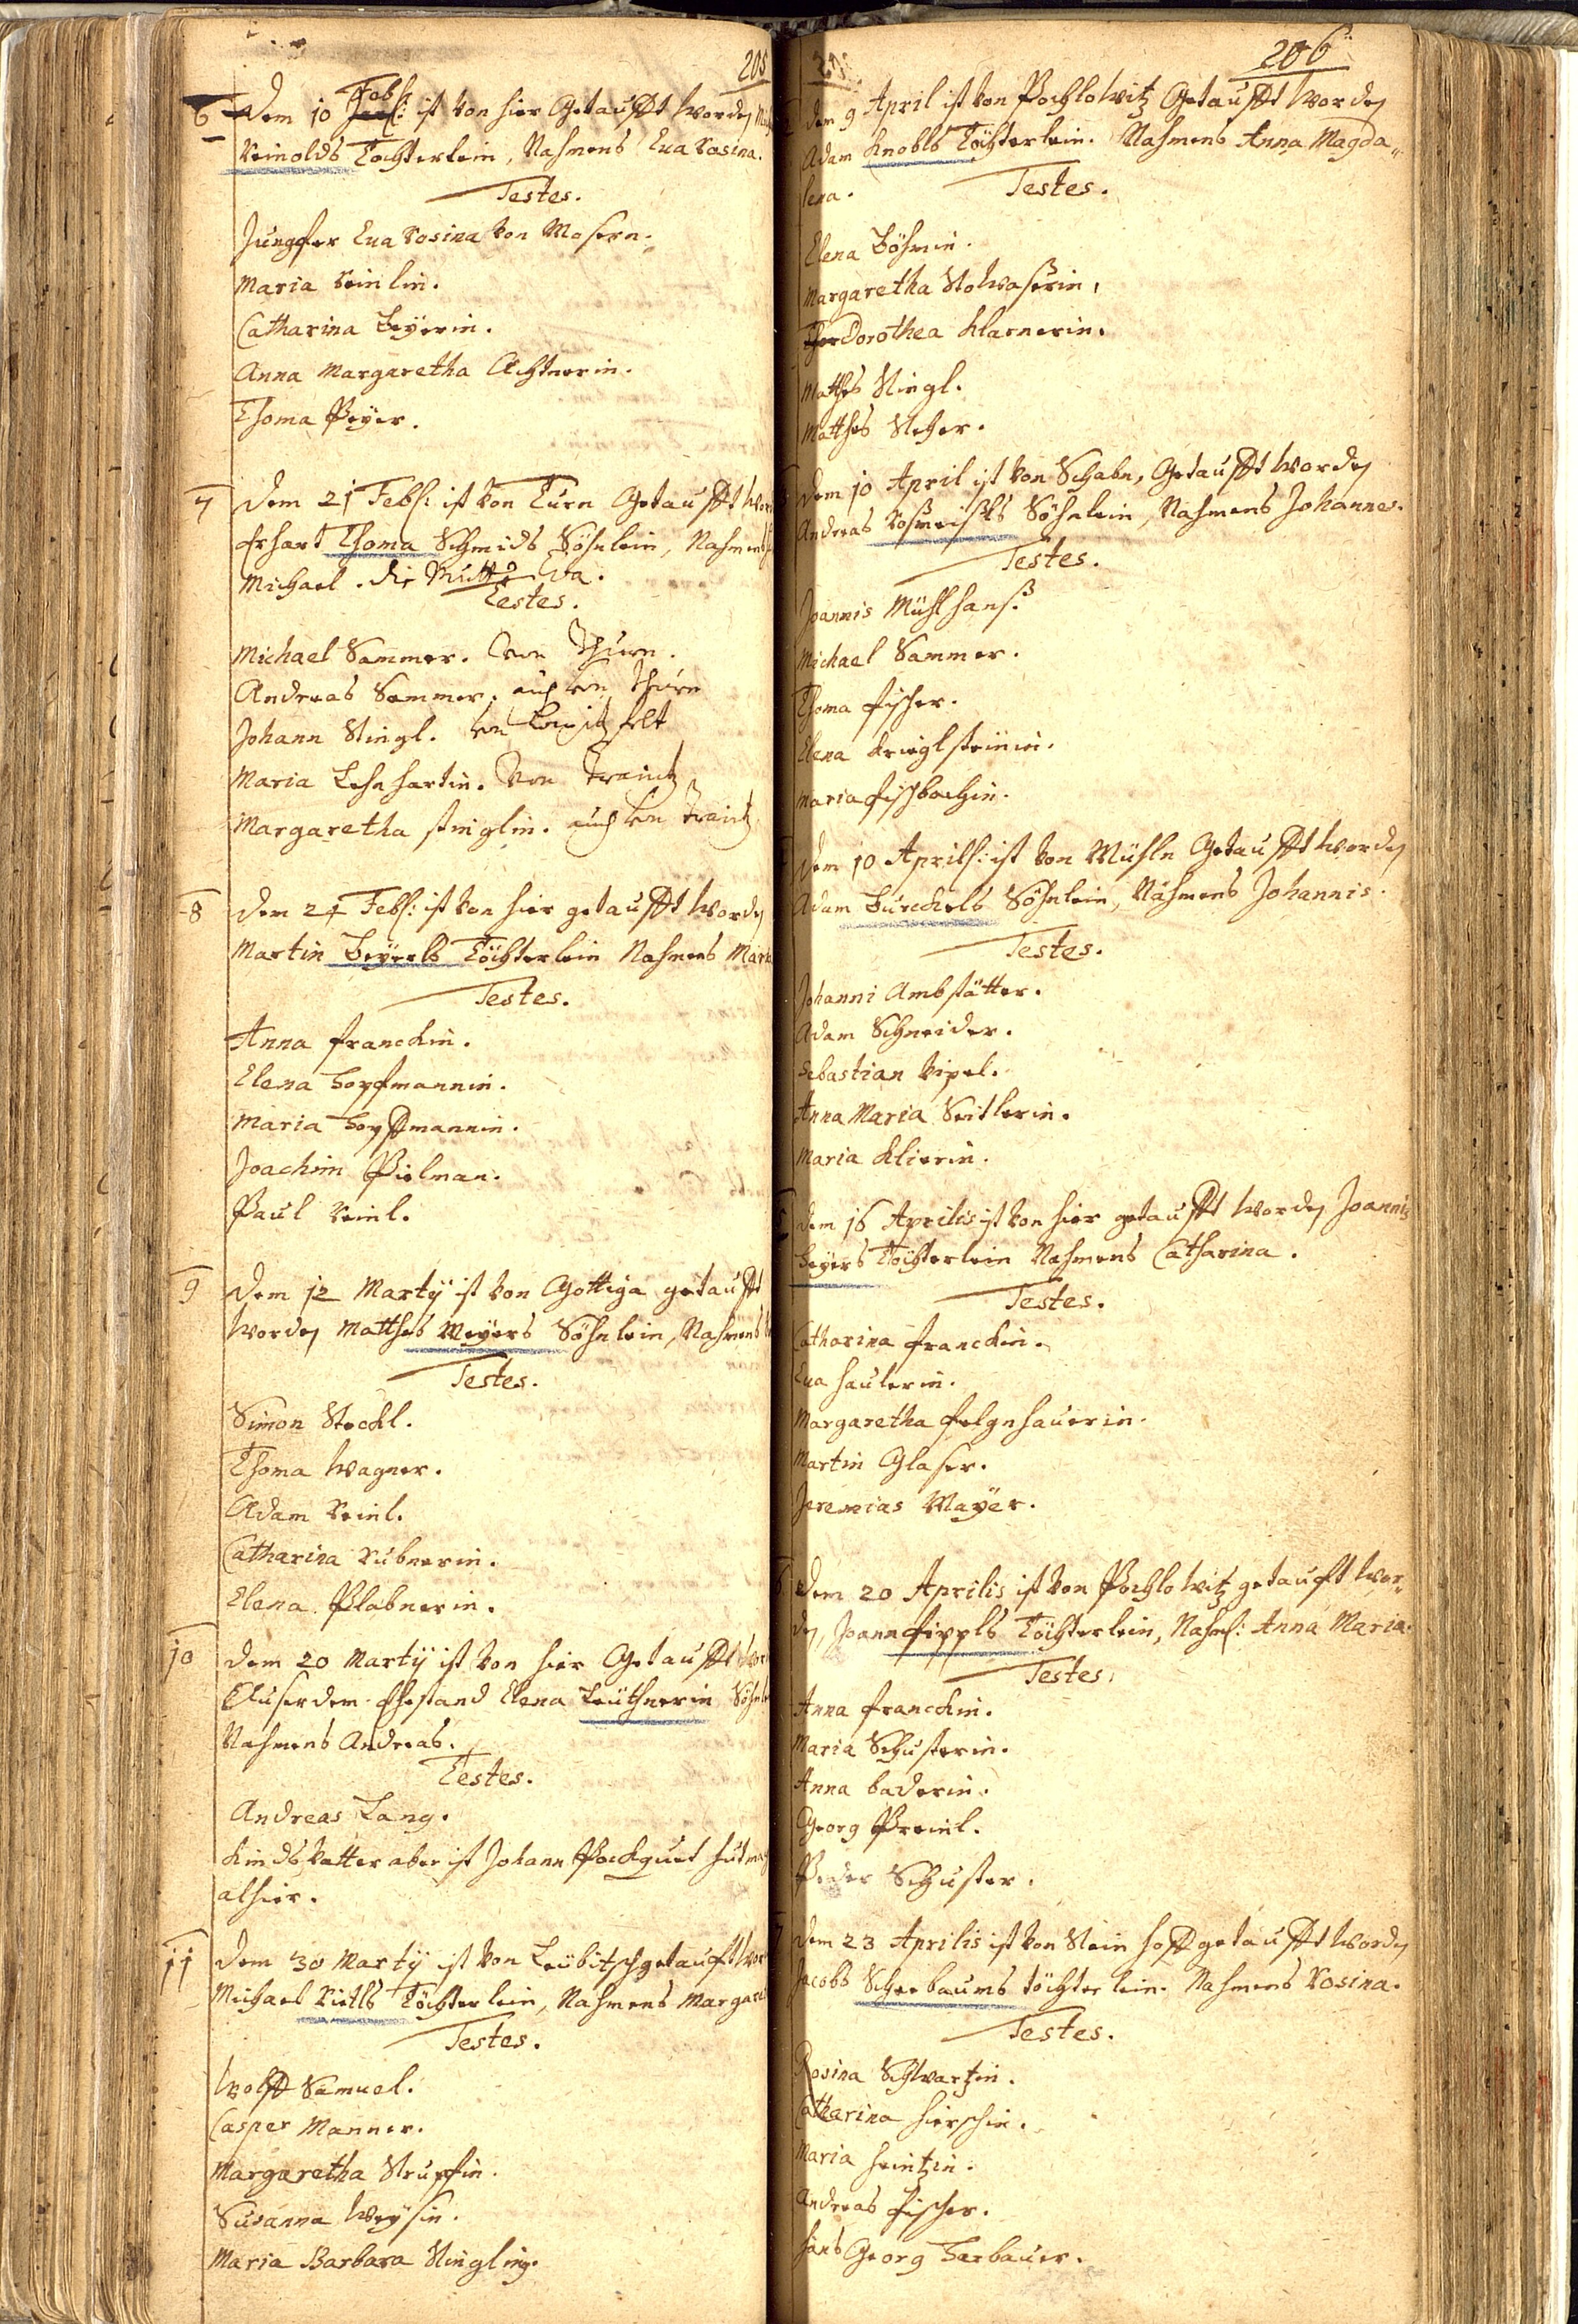 205
6 Dem 10 Feb: ist von hier Getaufft worden
Reinolds Töchterlein, Nahmens Eva Rosina.
Testes.
Jungfer Eva Rosina von Mosern.
Maria Reinlin.
Catharina Beÿerin.
Anna Margaretha Achtnerin.
Thoma Peÿer.
7 Dem 21 Feb: ist von Turn Getaufft
Erhart Thoma Schmids Söhnlein, Nahmens
Michael. die Mutter Eva.
Testes.
Michael Sammer. von Thurn.
Andreas Sammer. auch von Thurn
Johann Stingl. von
Maria Lehnhartin. Von Trainitz
Margaretha Stinglin. auch von Trainitz
8 Dem 24 Feb: ist von hier getaufft worden
Martin Beÿerls Töchterlein Nahmens Maria
Testes.
Anna Franckin.
Elena Hopfmannin.
Maria Hopffmannin.
Joachim Pielman.
Paul Reinl.
9 Dem 12 Martÿ ist von Gottiga getaufft
worden Matthes Meÿers Söhnlein, Nahmens
Testes.
Simon Stöckl.
Thoma Wagner.
Adam Reinl.
Catharina Rubnerin.
Elena Plabnerin.
10 Dem 20 Martÿ ist von hier Getaufft
Auser dem Ehestand Elena Leüthnerin
Nahmens Andreas.
Testes.
Andreas Lang.
Kinds Vatter aber ist Johann Pockquet
alhier.
11 Dem 30 Martÿ ist von Leübitsch getaufft
Michael Rietls Töchterlein, Nahmens
Testes.
Wolff Samuel.
Casper Manner.
Margaretha Strupfin.
Susanna Weÿsin.
Maria Barbara Stinglin.
206
Dem 9 April ist von Pochlowitz Getaufft worden
Adam Knobls Töchterlein. Nahmens Anna Magda„
lena. Testes.
Elena Böhmin.
Margaretha Stohwaserin,
Dorothea Klarnerin.
Matthes Stingl.
Matthes Steher.
Dem 10 April ist von Schaben, Getaufft worden
Andreas Söhnlein, Nahmens Johannes.
Testes.
Joannis Mühlhanß.
Michael Sammer.
Thoma Fischer.
Elena Krieglsteinin.
Maria Fischbachin.
Dem 10 Apriles: ist von Mühln Getaufft worden
Adam Burckels Söhnlein, Nahmens Johannis.
Testes.
Johanni Ambstätter.
Adam Schneider.
Sebastian Ripel.
Anna Maria Seitlerin.
Maria Klierin.
Dem 16 Aprilis ist von hier getaufft worden Joannis
Beÿers Töchterlein Nahmens Catharina.
Testes.
Catharina Franckin.
Eva Haulerin.
Margaretha Felgenhauerin.
Martin Glaser.
Jeremias Maÿer.
Dem 20 Aprilis ist von Pochlowitz getaufft wor„
den, Joann Fippls Töchterlein, Nahm: Anna Maria.
Testes.
Anna Franckin.
Maria Schusterin.
Anna Baderin.
Georg Preinl.
Peder Schuster.
Dem 23 Aprilis ist von Steinhoff getaufft worden
Jacobs Scherbaums töchterlein. Nahmens Rosina.
Testes.
Rosina Schwartzin.
Catharina Hierschin.
Maria Heintzin.
Andreas Fischer.
Hans Georg Harbauer.